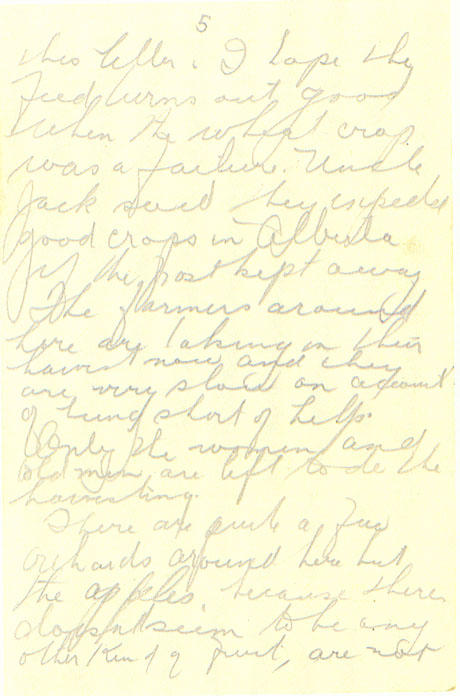 5
this letter. I hope the
feed turns out good
when the wheat crop
was a failure. Uncle
Jack said they expected
good crops in Alberta
if the frost kept away
The farmers around
here are taking in their
harvest now and they
are very slow on account
of being short of help.
Only the women and
old men are left to do the
harvesting.
There are quite a few
orchards around here but
the apples because there
doesn't seem to be any
other kind of fruit, are not